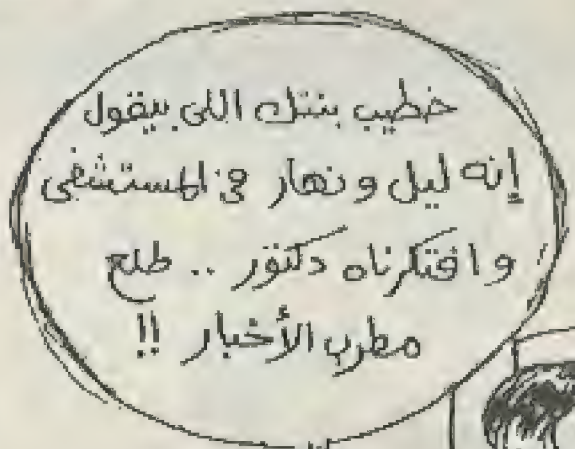 خطيب بنتك اللى بيقول
إنه ليل و نهار فى المستشفى
و افتكرناه دكتور .. طلع
مطرب الأخبار !!